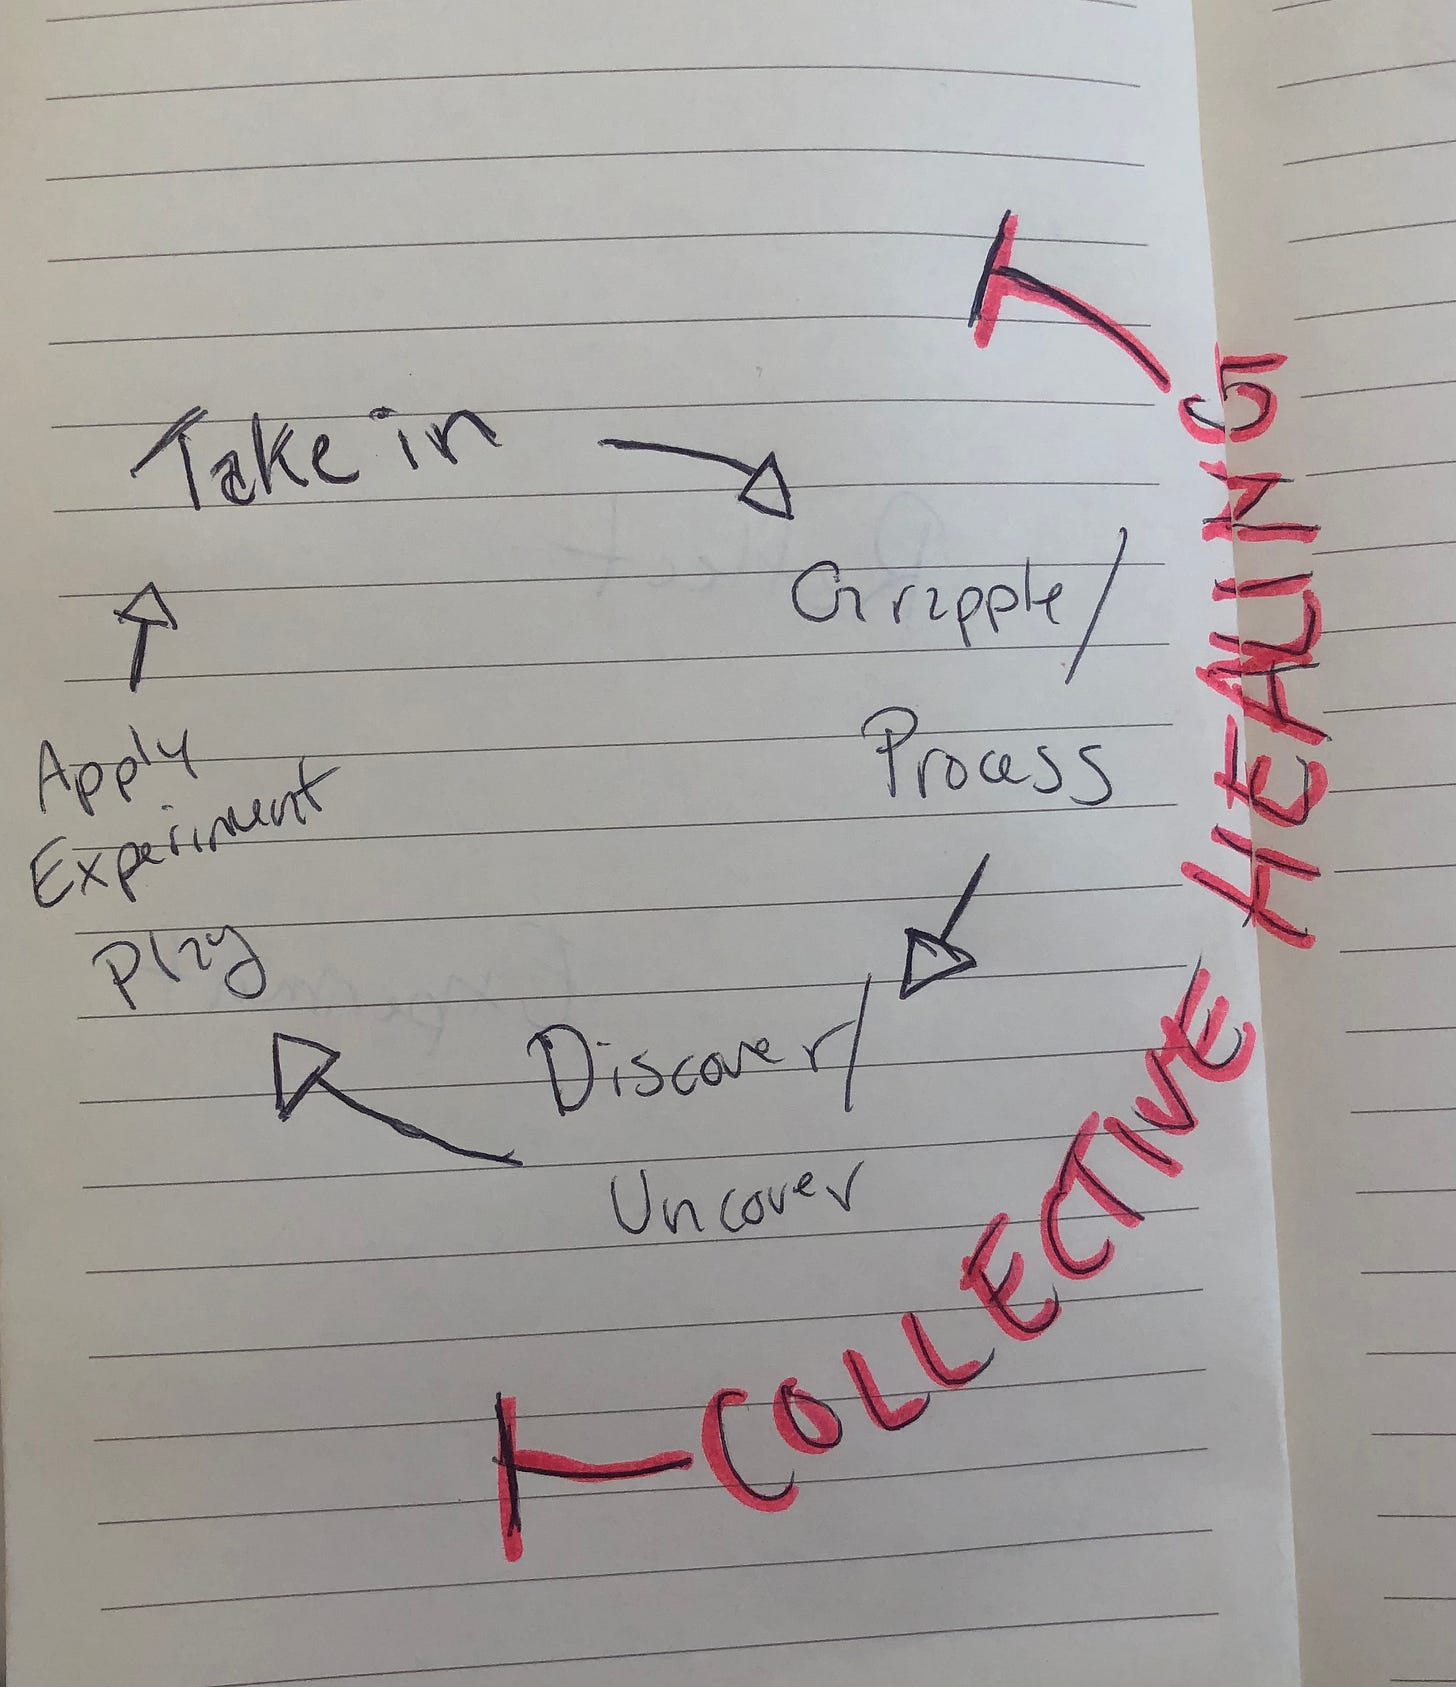 Take in
Grapple/
Process
Discover/
Uncover
Apply
Experiment
Play
COLLECTIVE HEALING